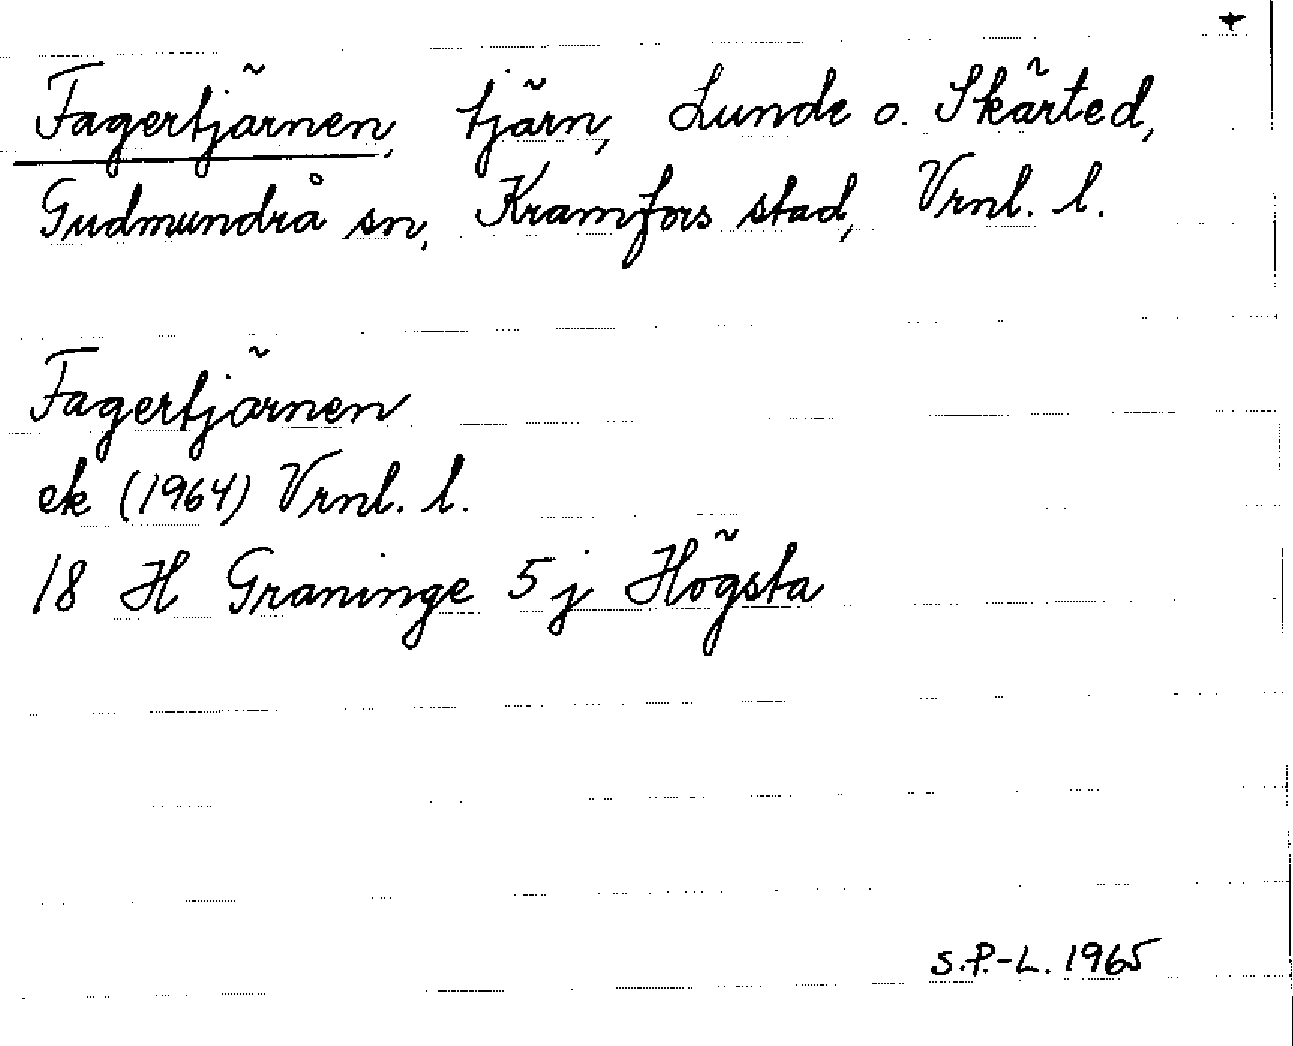 Fagertjärnen, tjärn, Lunde o. Skärted,
Gudmundrå sn, Kramfors stad, Vrnl. l.
Fagertjärnen
ek (1964) Vrnl. l.
18 H Graninge 5 j Högsta
S.P.-L. 1965